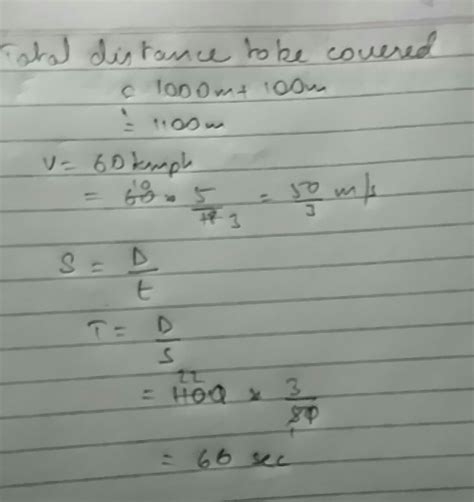 Total distance to be covered
= 1000m + 100m
= 1100m
V = 60 kmph
= 60 × 5/18 = 50/3 m/s
10 3
S = D/t
T = D/S
= 1100 × 3/50
22 1
= 66 sec